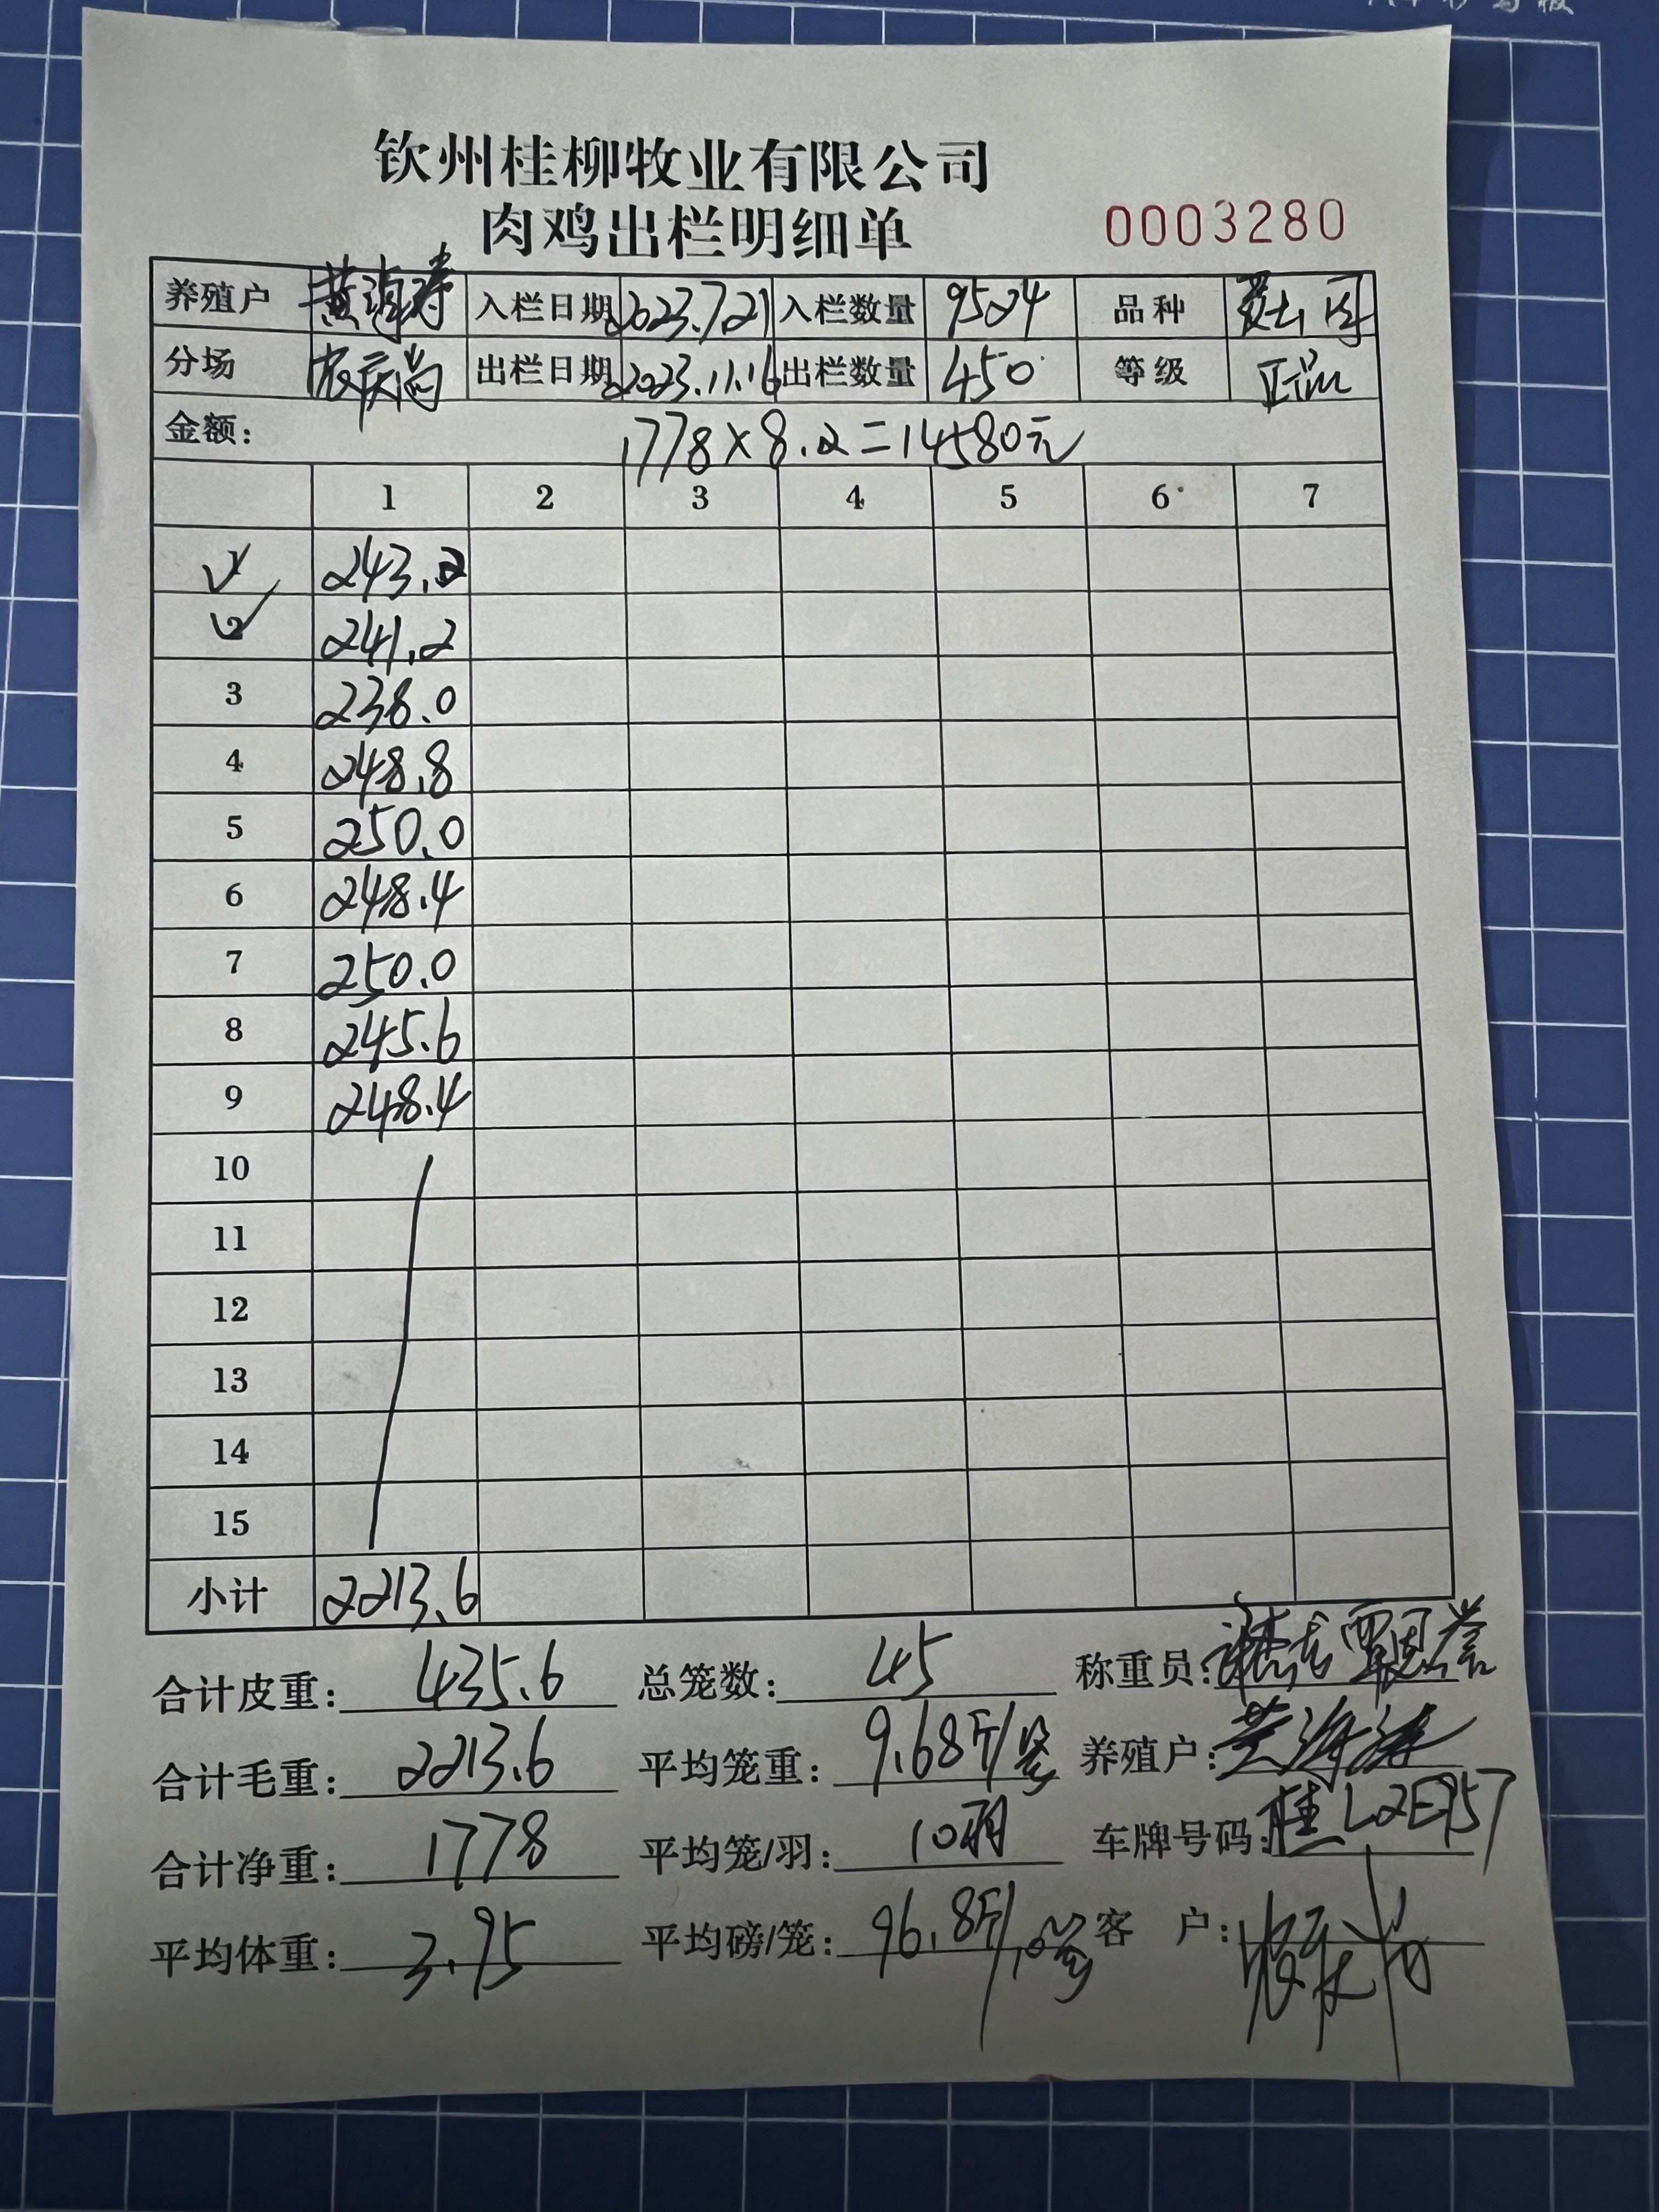 钦州桂柳牧业有限公司
肉鸡出栏明细单 0003280
养殖户 入栏日期 2023.7.21 入栏数量 9524 品种
分场 出栏日期 2023.11.16 出栏数量 450 等级 正品
金额: 1778×8.2=14580元
1 2 3 4 5 6 7
1 243.2
2 241.2
3 238.0
4 248.8
5 250.0
6 248.4
7 250.0
8 245.6
9 248.4
10
11
12
13
14
15
小计 2213.6
合计皮重: 435.6 总笼数: 45 称重员:
合计毛重: 2213.6 平均笼重: 9.68斤/笼 养殖户:
合计净重: 1778 平均笼/羽: 10羽 车牌号码: 桂L2E757
平均体重: 3.95 平均磅/笼: 96.8斤/10笼 客 户: